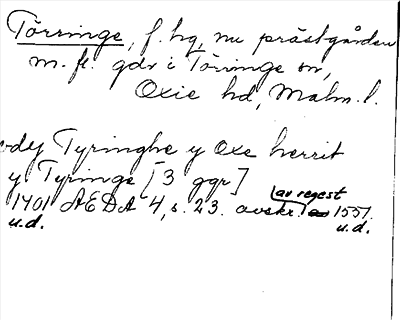 Törringe, f. hg, nu prästgården
m. fl. gdr i Törringe sn,
Oxie hd, Malm. l.
-dy Tyringhe y Oxe herrit
y Tyringe [3 ggr]
av regest
1401 ÆDA 4, s. 23. avskr. 1551.
u.d. u.d.